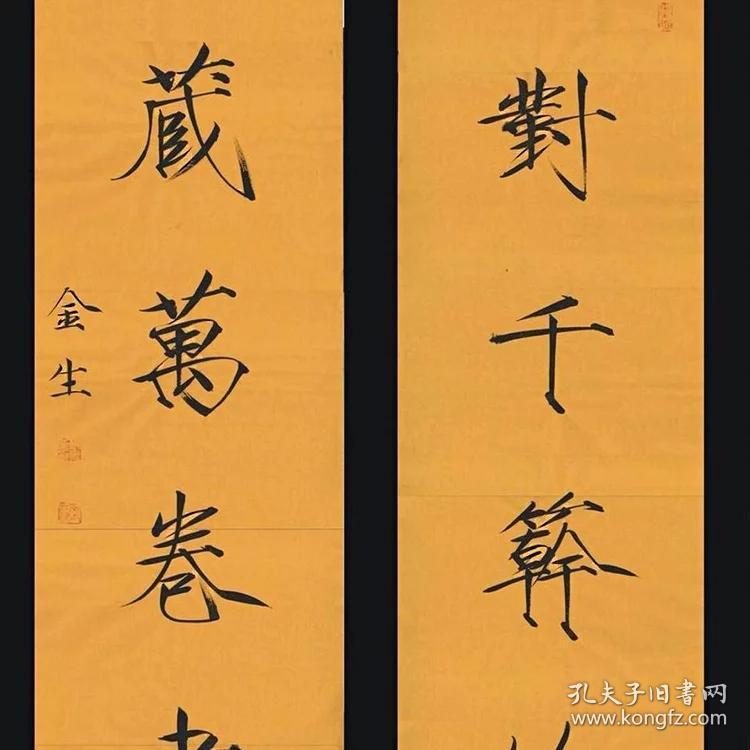 對千簳
藏萬卷
金生
孔夫子旧書网
www.kongfz.com